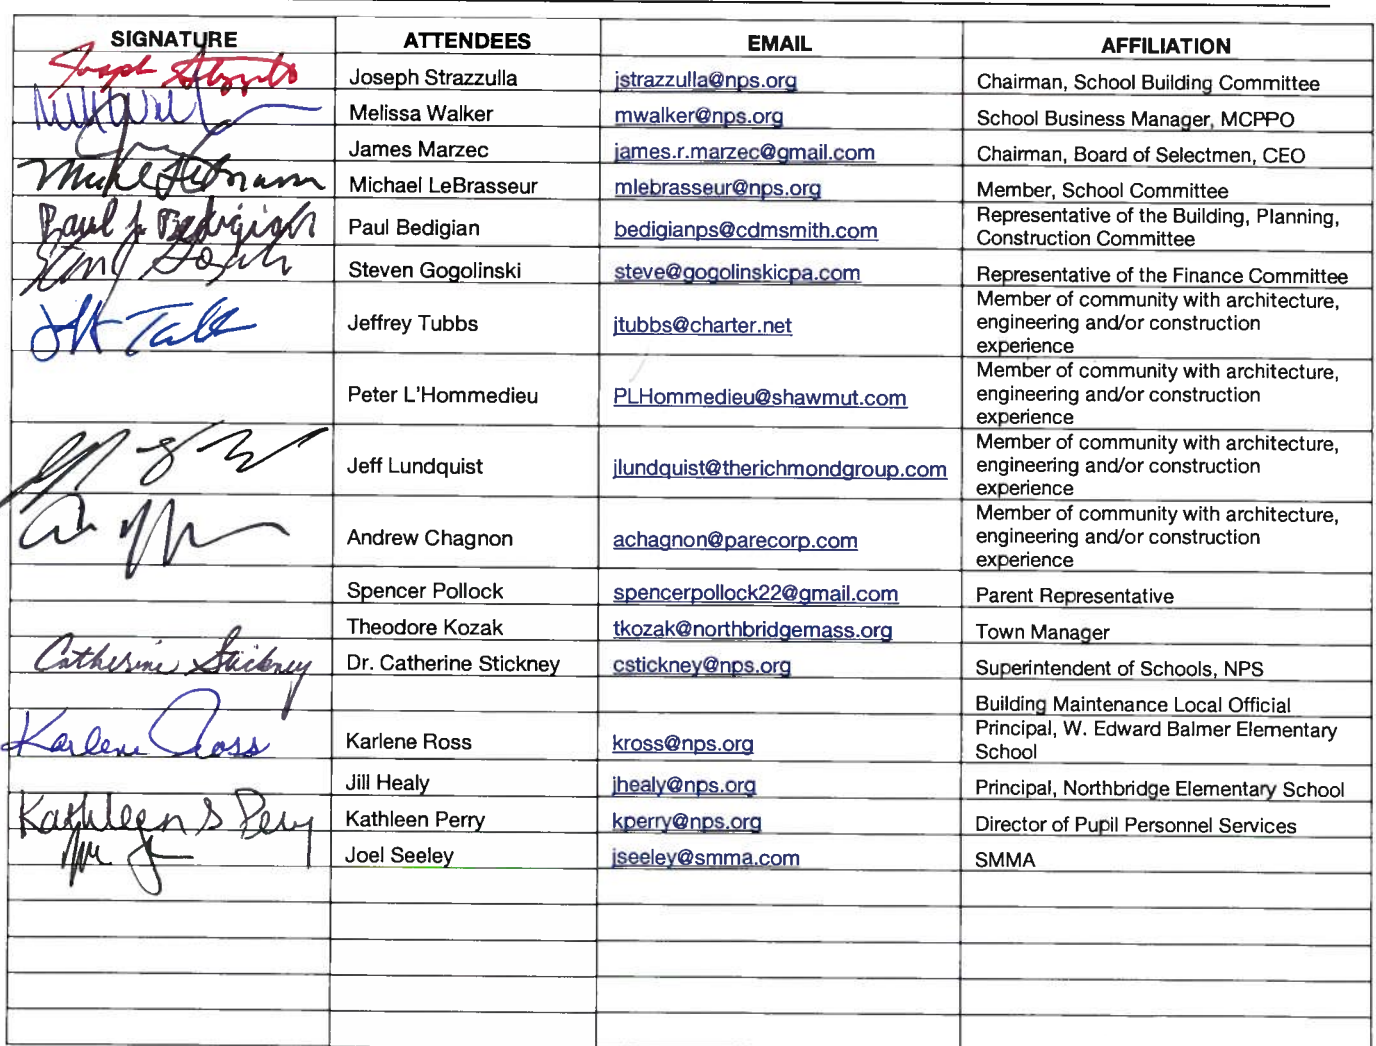 SIGNATURE ATTENDEES EMAIL AFFILIATION
Joseph Strazzulla Joseph Strazzulla jstrazzulla@nps.org Chairman, School Building Committee
Melissa Walker mwalker@nps.org School Business Manager, MCPPO
James Marzec james.r.marzec@gmail.com Chairman, Board of Selectmen, CEO
Michael LeBrasseur mlebrasseur@nps.org Member, School Committee
Paul J. Bedigian Paul Bedigian bedigianps@cdmsmith.com Representative of the Building, Planning,
Construction Committee
Steven Gogolinski steve@gogolinskicpa.com Representative of the Finance Committee
Jeffrey Tubbs jtubbs@charter.net Member of community with architecture,
engineering and/or construction
experience
Peter L'Hommedieu PLHommedieu@shawmut.com Member of community with architecture,
engineering and/or construction
experience
Jeff Lundquist jlundquist@therichmondgroup.com Member of community with architecture,
engineering and/or construction
experience
Andrew Chagnon achagnon@parecorp.com Member of community with architecture,
engineering and/or construction
experience
Spencer Pollock spencerpollock22@gmail.com Parent Representative
Theodore Kozak tkozak@northbridgemass.org Town Manager
Catherine Stickney Dr. Catherine Stickney cstickney@nps.org Superintendent of Schools, NPS
Building Maintenance Local Official
Karlene Ross Karlene Ross kross@nps.org Principal, W. Edward Balmer Elementary
School
Jill Healy jhealy@nps.org Principal, Northbridge Elementary School
Kathleen S Perry Kathleen Perry kperry@nps.org Director of Pupil Personnel Services
Joel Seeley jseeley@smma.com SMMA